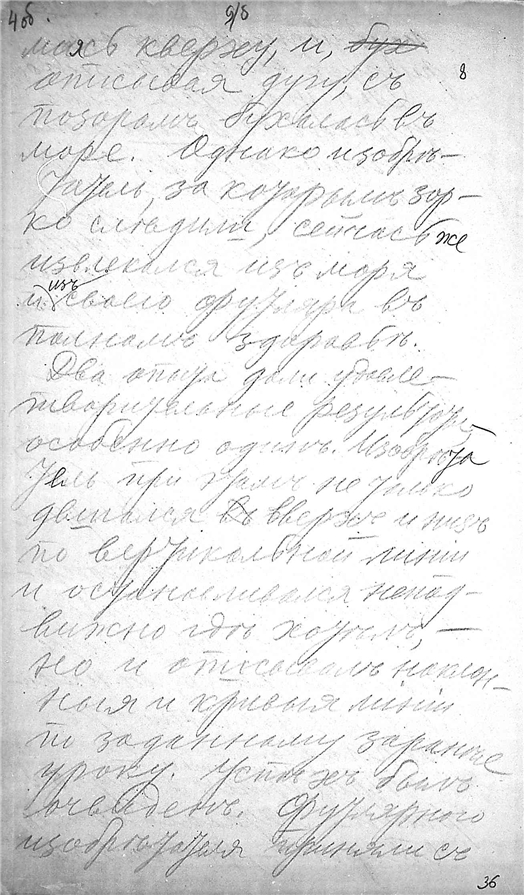 4 об. 9/8
маясь кверху, и, бух
8
описывая дугу, съ
позоромъ бухалась въ
море. Однако изобрѣ-
татель, за которымъ зор-
ко слѣдили, сейчасъ же
извлекался изъ моря
и изъ своего футляра въ
полномъ здоровьѣ.
Два опыта дали удовле-
творительные результаты,
особенно одинъ. Изобрѣта
тель при томъ не только
двигался въ вверхъ и низъ
по вертикальной линіи
и останавливался непод-
вижно гдѣ хотѣлъ, —
но и описывалъ наклон-
ныя и кривыя линіи
по заданному заранѣе
уроку. Успѣхъ былъ
очевиденъ. Футлярного
изобрѣтателя приняли съ
36